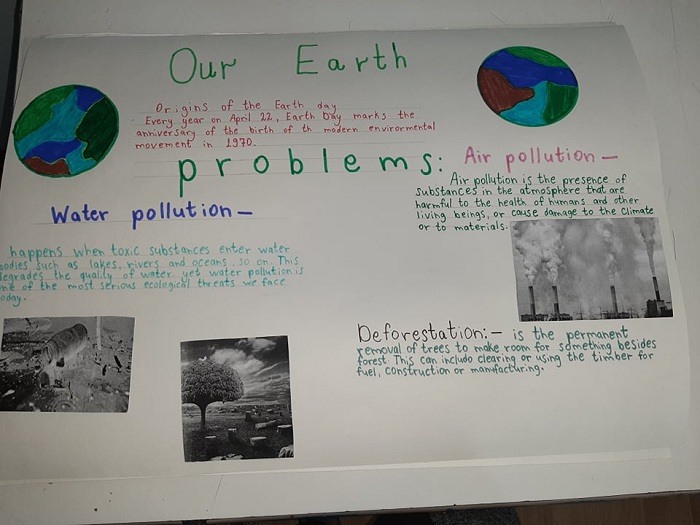 Our Earth
Origins of the Earth day
Every year on April 22, Earth Day marks the
anniversary of the birth of th modern environmental
movement in 1970.
problems:
Water pollution—
happens when toxic substances enter water
bodies such as lakes, rivers and oceans, so on. This
degrades the quality of water. yet water pollution is
one of the most serious ecological threats we face
today.
Air pollution—
Air pollution is the presence of
substances in the atmosphere that are
harmful to the health of humans and other
living beings, or cause damage to the climate
or to materials.
Deforestation:— is the permanent
removal of trees to make room for something besides
forest. This can include clearing or using the timber for
fuel, construction or manufacturing.